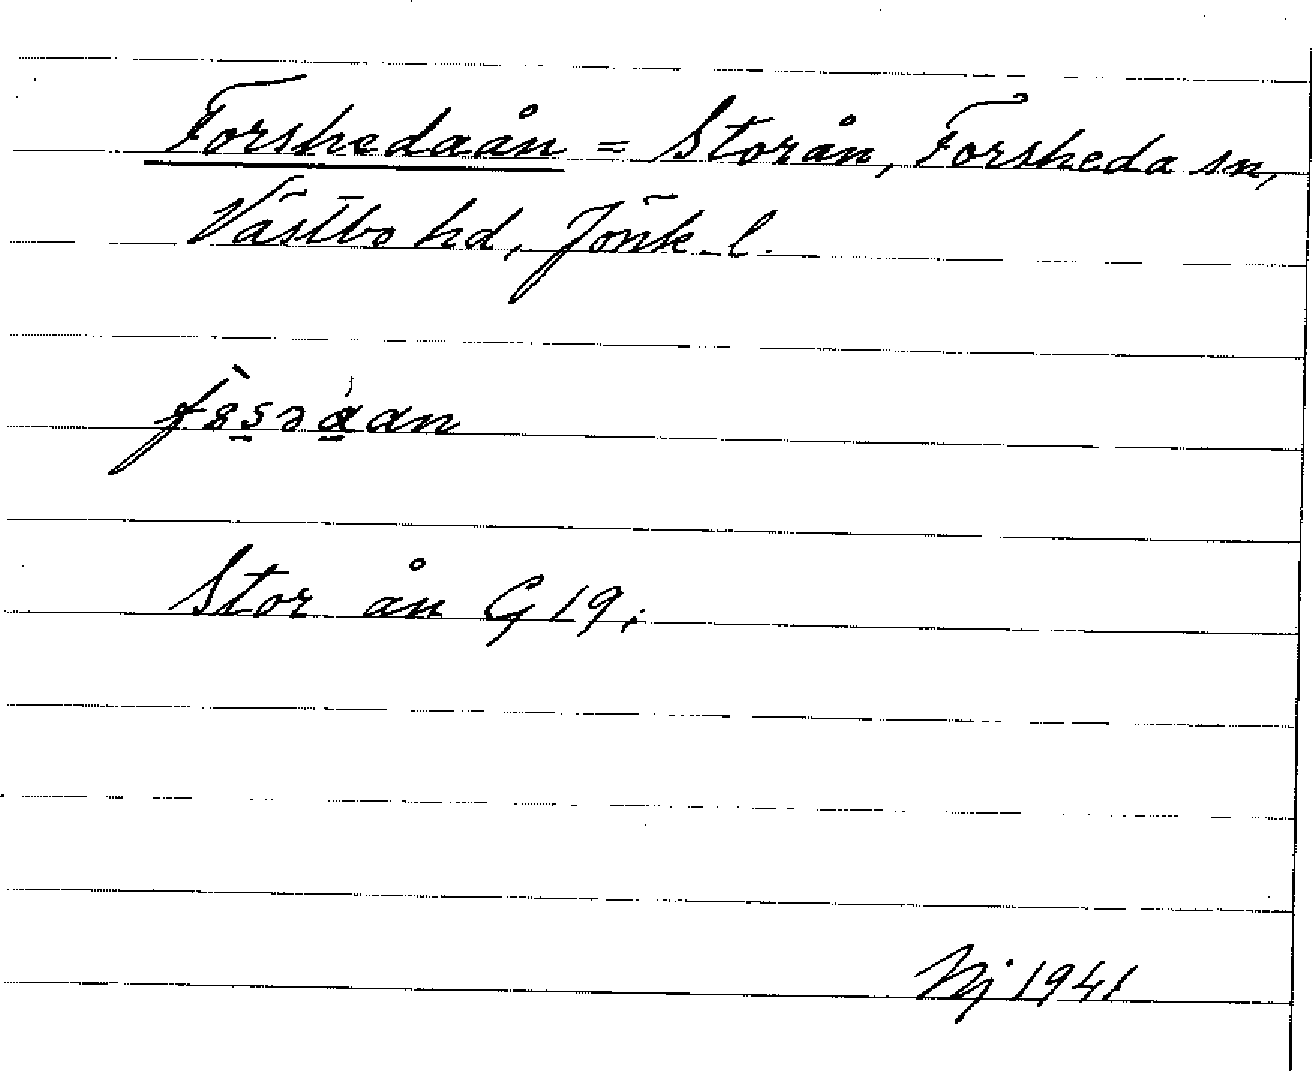 Forshedaån = Storån, Forsheda sn,
Västbo hd, Jönk. l.
Stor ån G 19;
Nj 1941